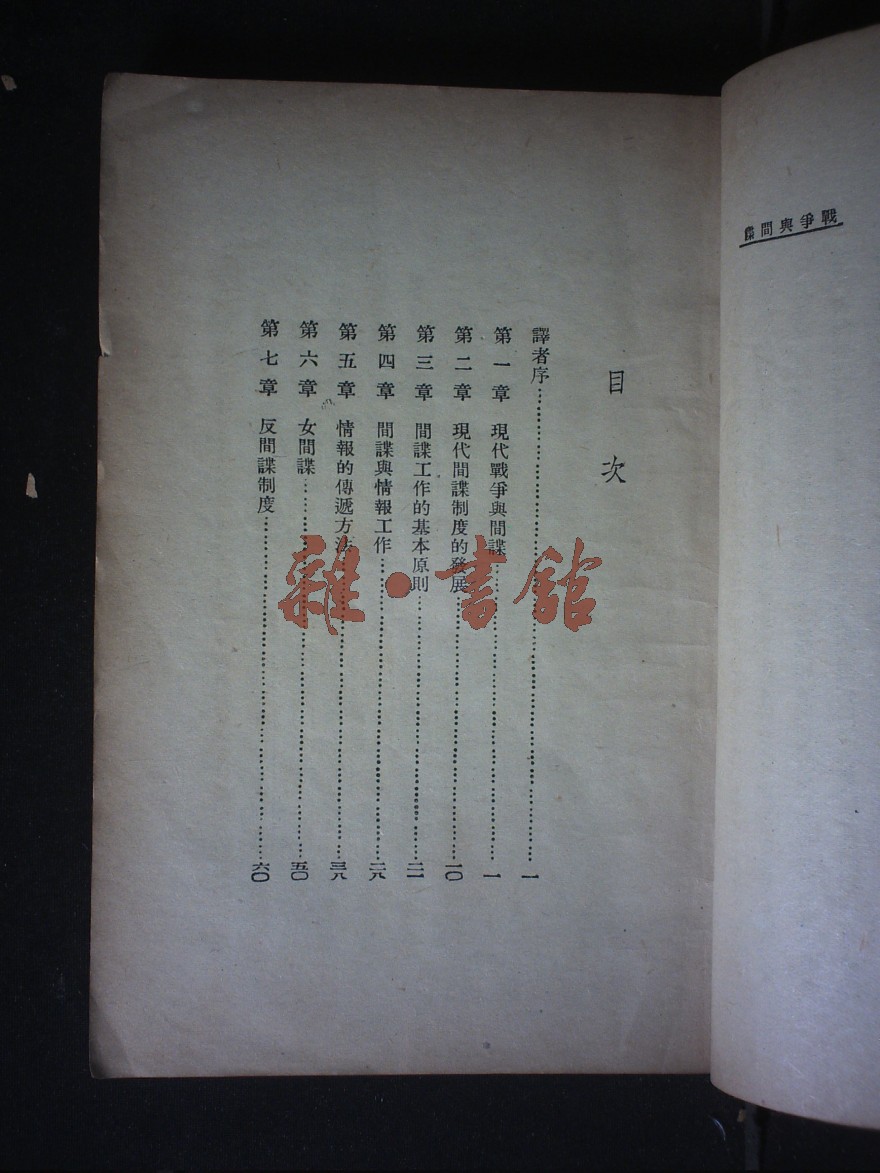 戰爭與間諜
目次
譯者序……一
第一章 現代戰爭與間諜……一
第二章 現代間諜制度的發展……一〇
第三章 間諜工作的基本原則……二一
第四章 間諜與情報工作……二八
第五章 情報的傳遞方法……三八
第六章 女間諜……五〇
第七章 反間諜制度……六〇
雜·書館